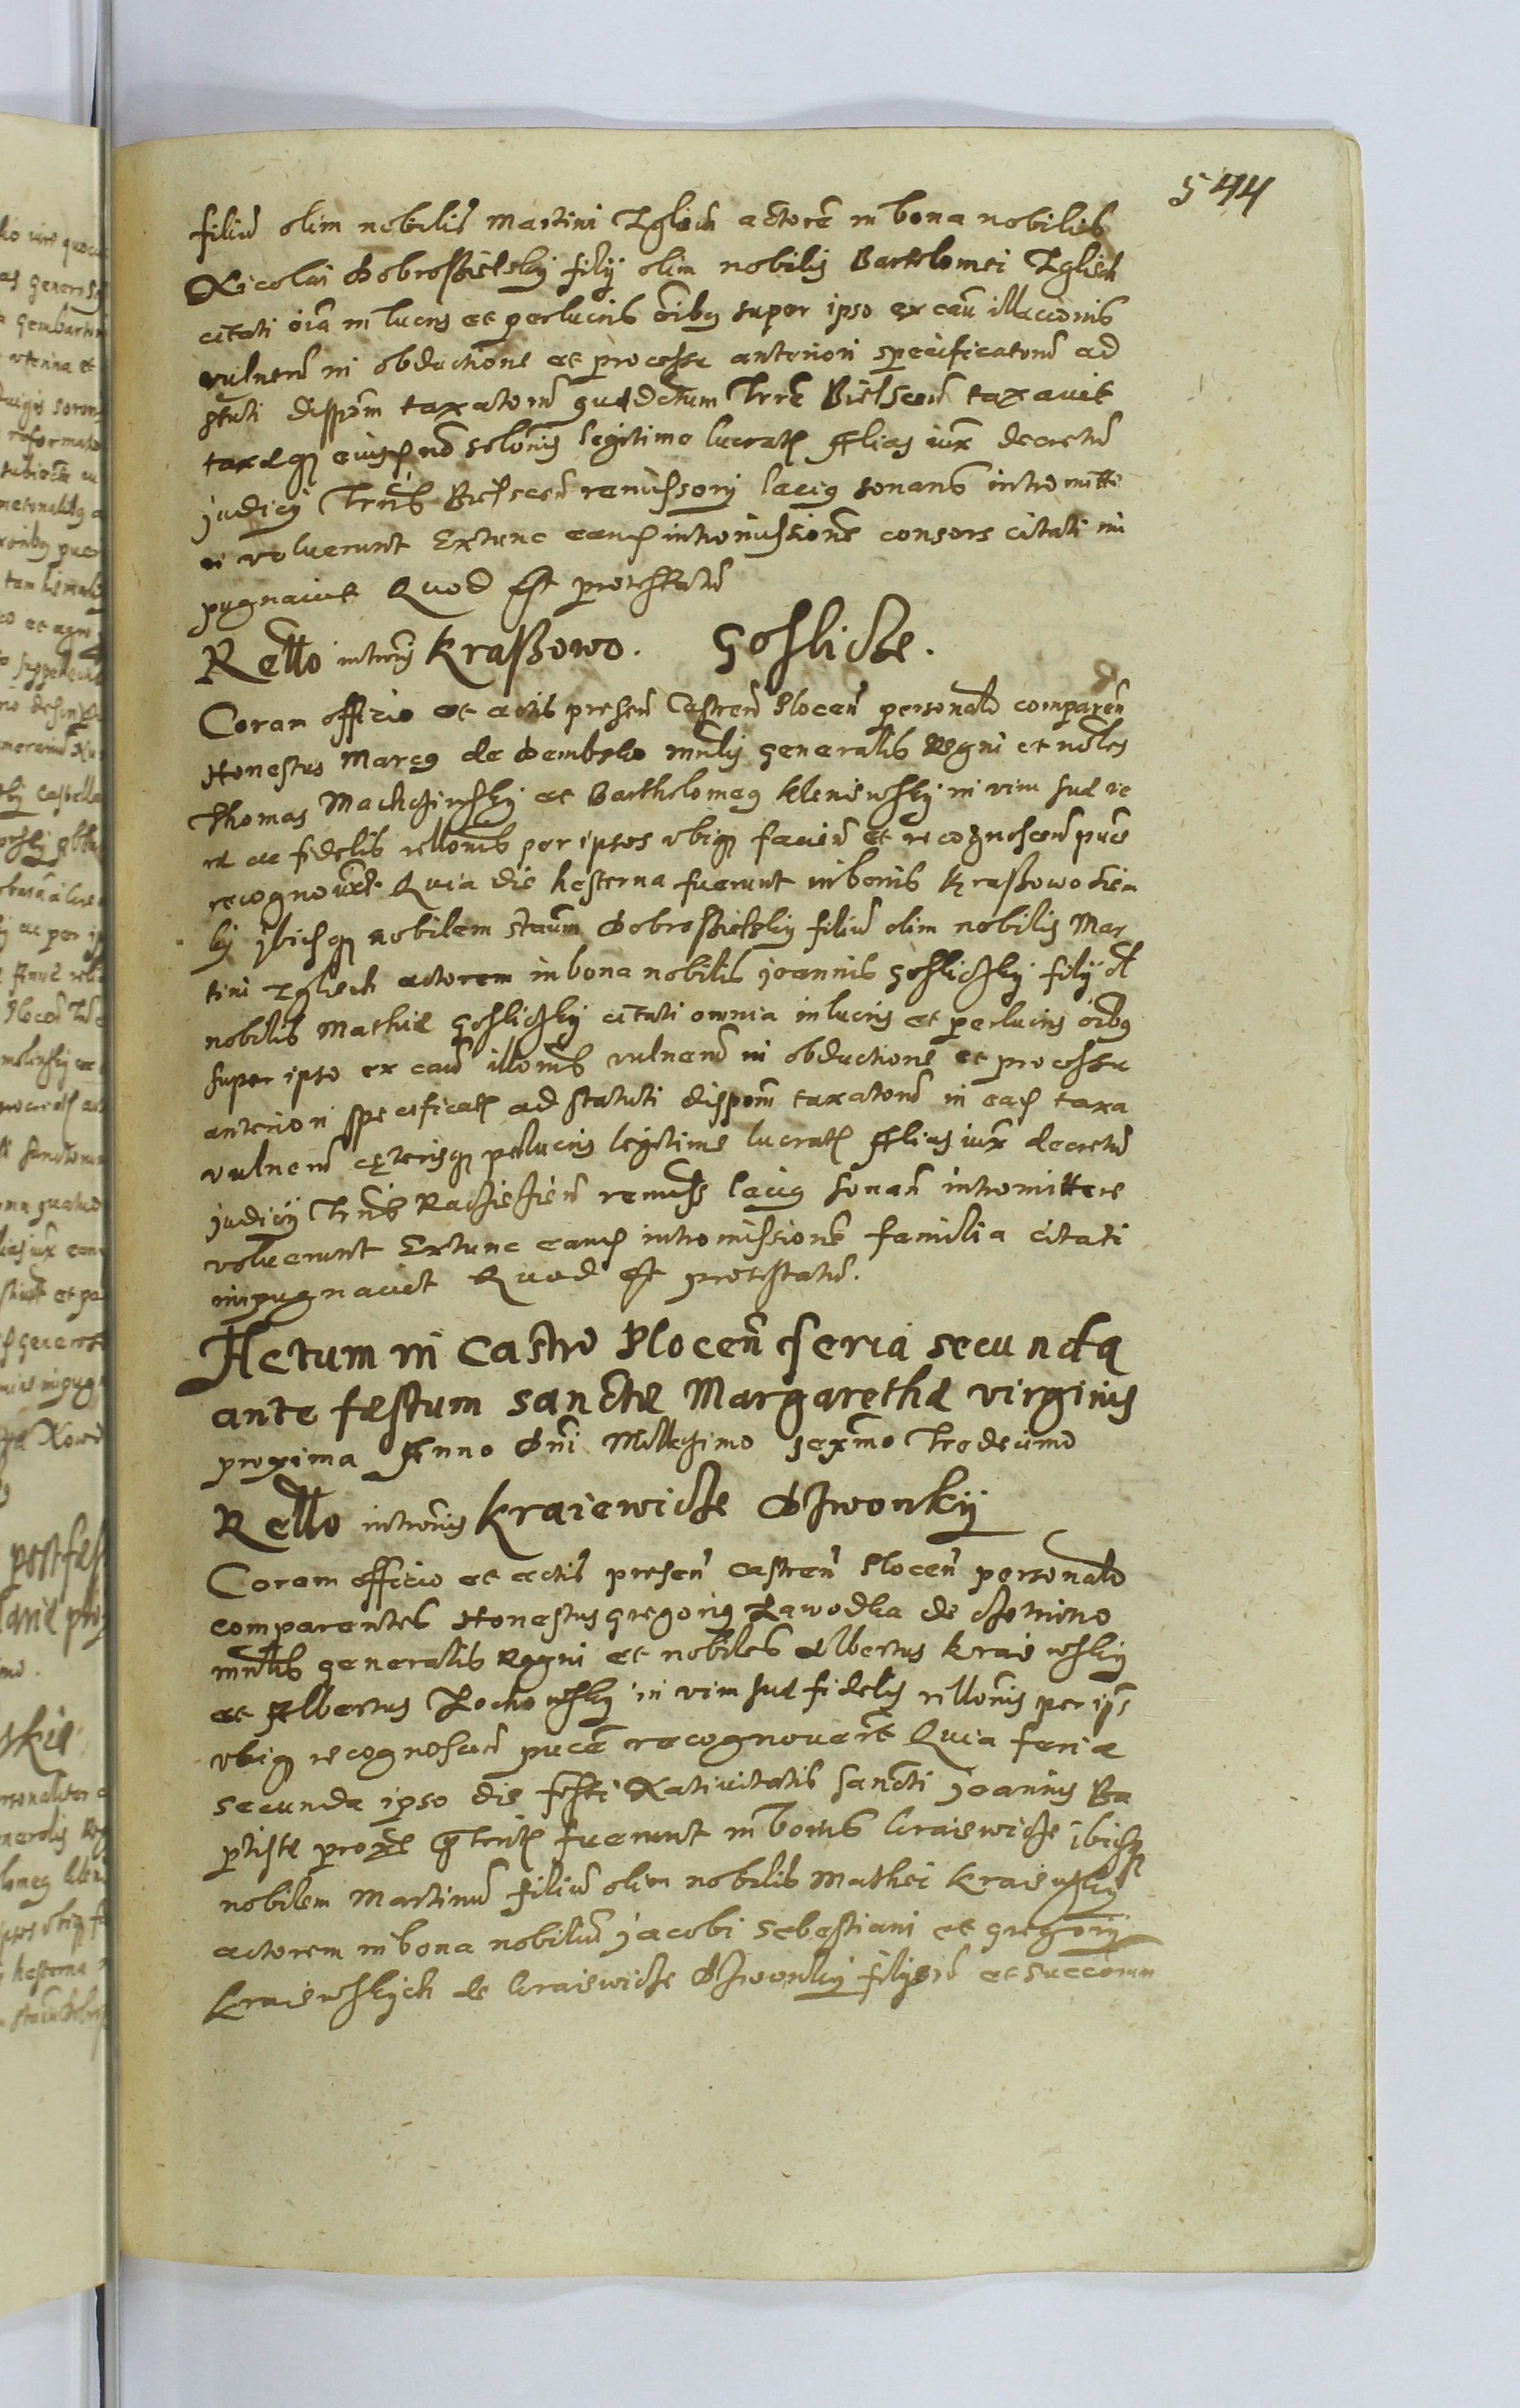 544
filiu͂ olim nobilis Martini Iglich actore͂ in bona nobilis
Nicolai Dobrossielsky filij olim nobilis Bartolomei Iglich
citati o͂ia in lucris et perlucris o͂ibus super ipso ex cau͂ illacionis
vulneru͂ in obductione et processu anteriori specificatoru͂ ad
statuti dispo͂em taxatoru͂ quæ dictum Trr͂e Bielscen͂ taxavit
legitime lucrat͂ alias iux͂ decretu͂
judicij Trr͂is Bielscen͂ remissorij lacius sonans intromitte
re voluerunt Extunc eand͂ intromissione͂ consors citati im
pugnavit Quod est protestatu͂
Rello intro͂is Krassowo. Goslicze.
Coram officio et actis presen͂ Castren͂ Plocen͂ personal͂r comparen͂
Honestus Marcus de Dembsko mn͂lis generalis Regni et no͂les
Thomas Machczinsky et Bartholomeus Kleniewsky in vim suæ ve
ræ ac fidelis rello͂is per ipsos ubique facien͂ et recognoscen͂ puce
recognover͂t Quia die hesterna fuerunt in bonis Krassowo
ky ibidque nobilem Stan͂m Dobrossielsky filiu͂ olim nobilis Mar
tini Iglich actorem in bona nobilis Joannis Gosliczky filij ol͂
nobilis Mathiæ Gosliczky citati omnia in lucris et perlucris o͂ibus
super ipso ex cau͂ illo͂is vulneru͂ in obductione et processu
anteriori specificat͂ ad statuti dispo͂em taxatoru͂ in ead͂ taxa
vulneru͂ cęterisque perlucris legitime lucrat͂ alias iux͂ decretu͂
judicij Trr͂is Raczięzien͂ remiss͂ lacius sonan͂ intromittere
voluerunt Extunc eand͂ intromissione͂ familia citati
impugnavit Quod est protestatu͂.
Actum in Castro Plocen͂ feria secunda
ante fæstum sanctæ Margarethæ virginis
proxima Anno Dn͂i Millesimo sexm͂o Tredecimo
Rello intro͂is Kraiewicze Dzwonky
Coram officio et actis presen͂ castren͂ Plocen͂ personal͂r
comparentes Honestus Gregorius Zawodka de
mn͂lis generalis Regni et nobiles Albertus Kraiewsky
et Albertus Zochowsky in vim suæ fidelis rello͂is per ip͂s
ubique recognoscen͂ puce͂ recognover͂t Quia feria
secunda ipso die festi Nativitatis sancti Joannis Ba
ptiste prox͂e præterit͂ fuerunt in bonis Kraiewicze ibidque
nobilem Martinu͂ filiu͂ olim nobilis Mathei Kraiewsky
actorem in bona nobiliu͂ Jacobi Sebastiani et Gregorij
Kraiewskych de Kraiewicze Dzwonky filioru͂ et succesorum